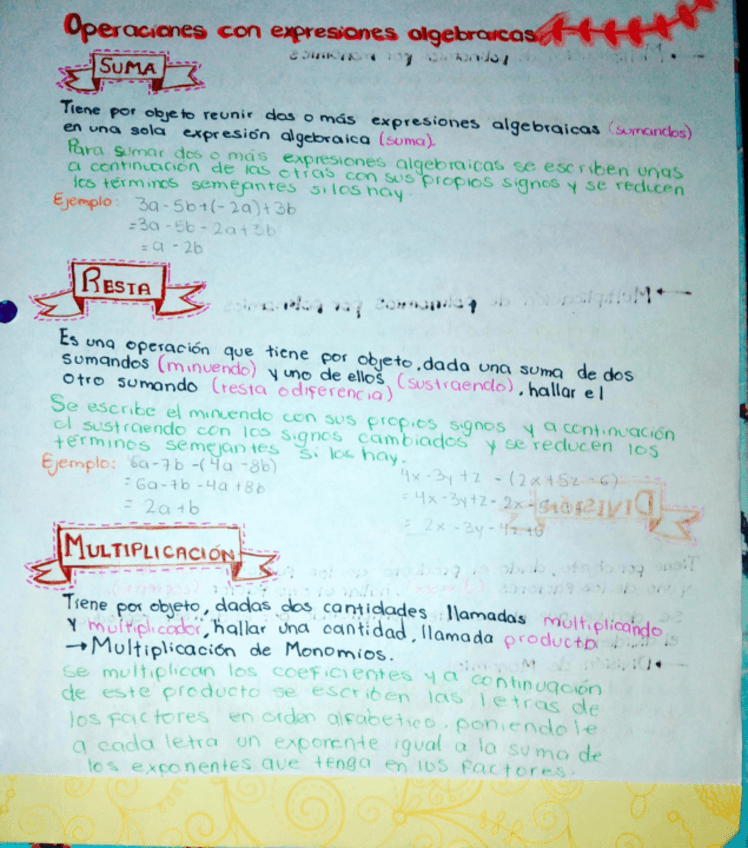 Operaciones con expresiones algebraicas
SUMA
Tiene por objeto reunir dos o más expresiones algebraicas (sumandos)
en una sola expresión algebraica (suma).
Para sumar dos o más expresiones algebraicas se escriben unas
a continuación de las otras con sus propios signos y se reducen
los términos semejantes si los hay.
Ejemplo: 3a-5b+(-2a)+3b
=3a-5b-2a+3b
=a-2b
RESTA
Es una operación que tiene por objeto, dada una suma de dos
sumandos (minuendo) y uno de ellos, (sustraendo), hallar el
otro sumando (resta o diferencia)
Se escribe el minuendo con sus propios signos y a continuación
el sustraendo con los signos cambiados y se reducen los
términos semejantes si los hay.
Ejemplo: 6a-7b-(4a-8b)
=6a-7b-4a+8b
= 2a+b
4x-3y+z-(2x+5z-6)
=4x-3y+z-2x-5z+6
= 2x-3y-4z+6
MULTIPLICACIÓN
Tiene por objeto, dadas dos cantidades llamadas multiplicando
y multiplicador, hallar una cantidad, llamada producto
→Multiplicación de Monomios.
Se multiplican los coeficientes y a continuación
de este producto se escriben las letras de
los factores en orden alfabético, poniendole
a cada letra un exponente igual a la suma de
los exponentes que tenga en los factores.